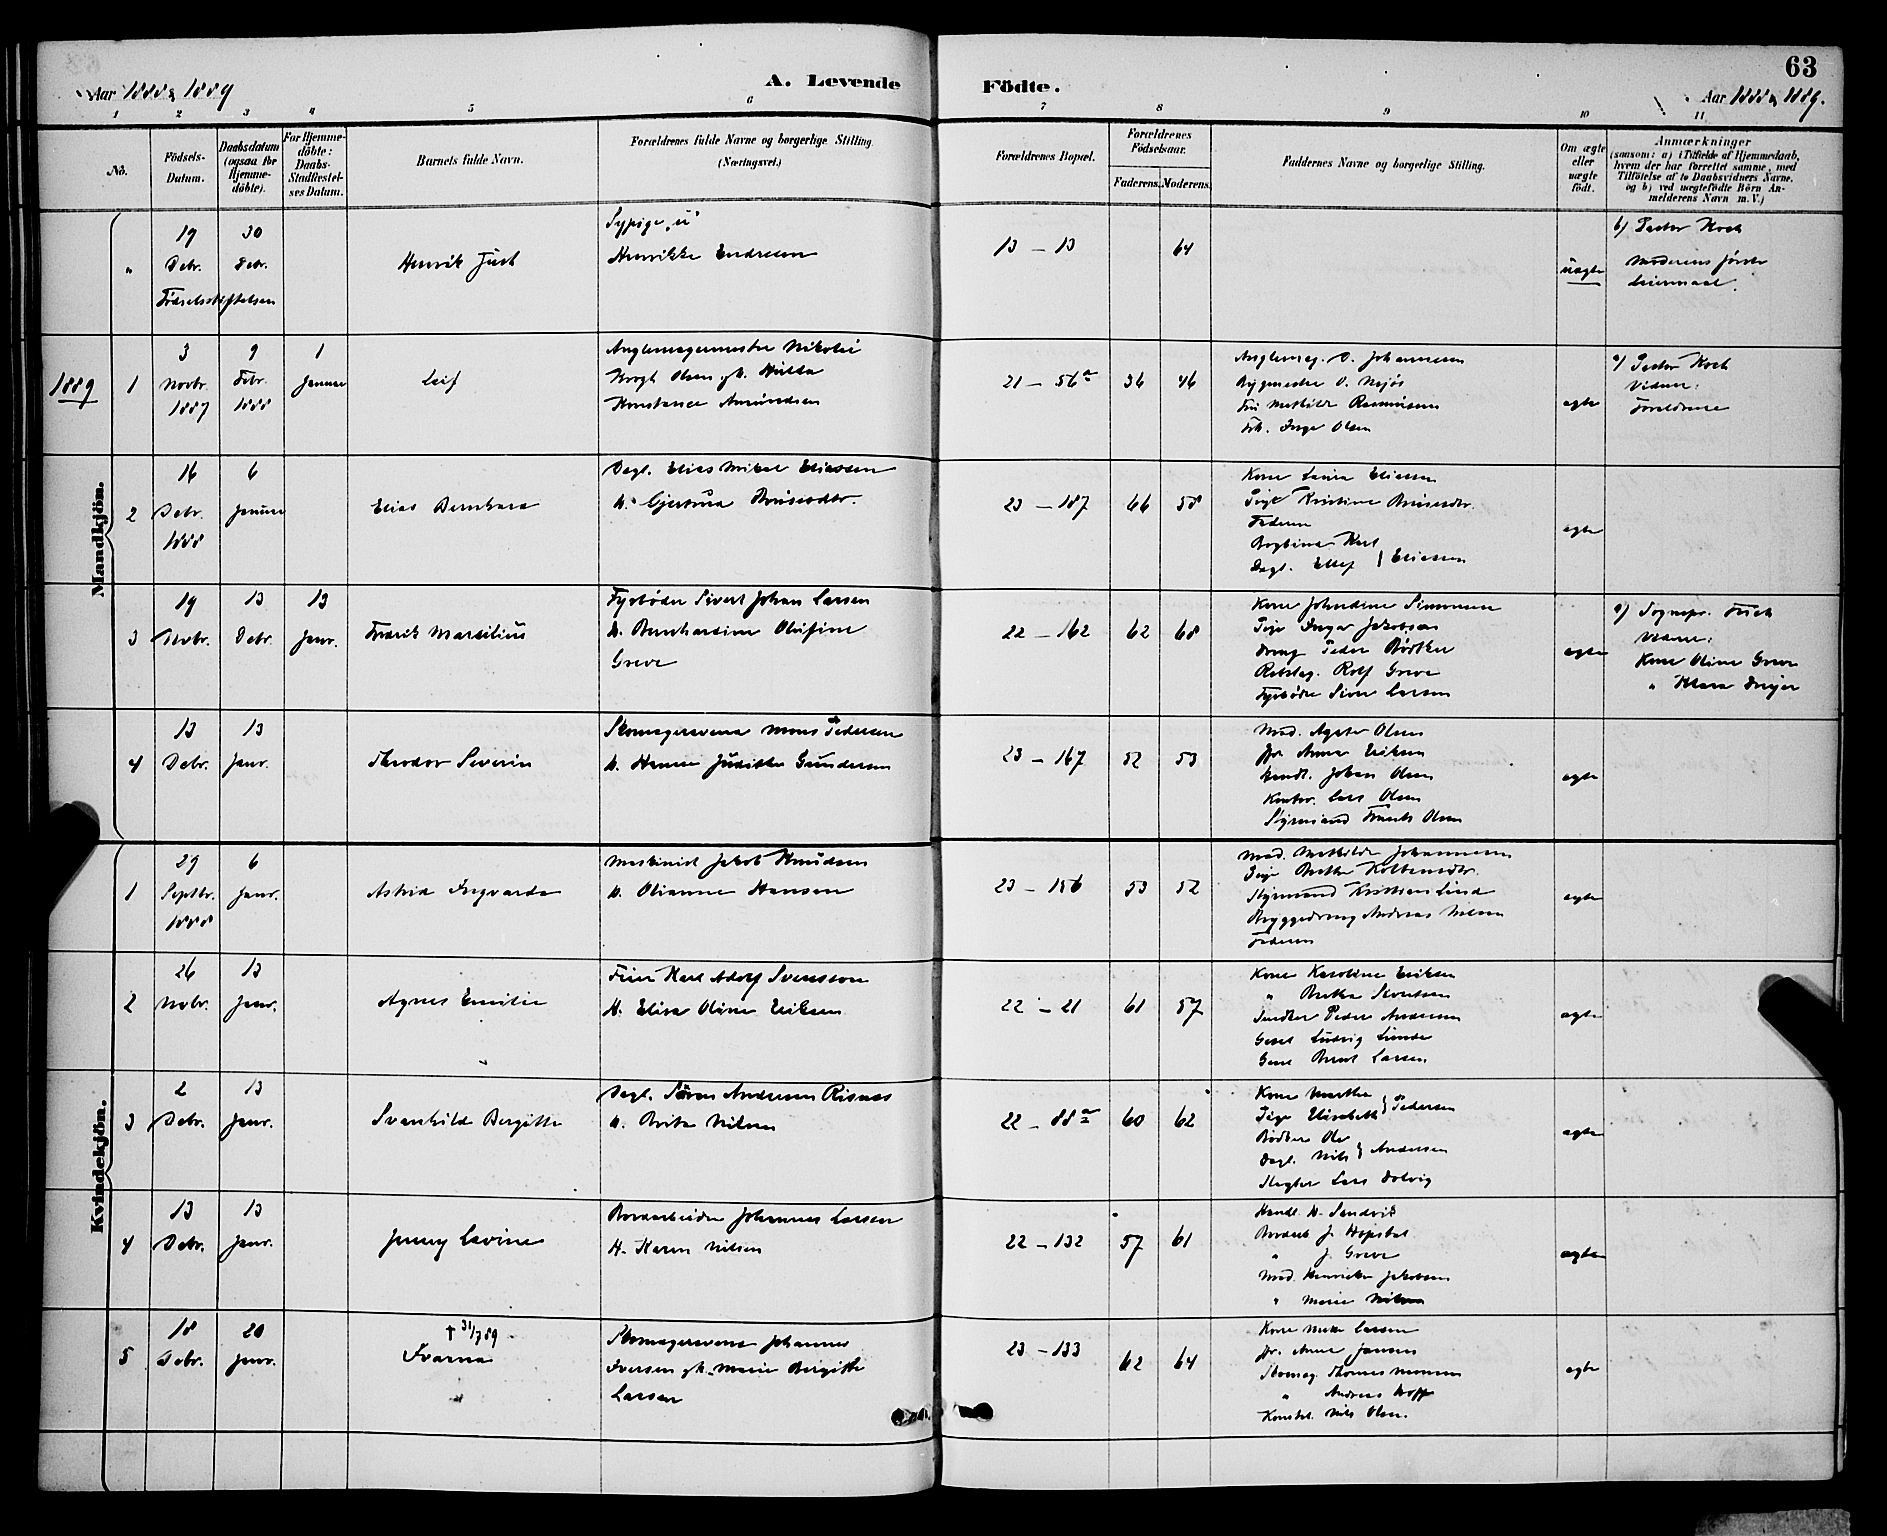 63
Aar 1888 & 1889
A. Levende
Födte.
Aar 1888 & 1889.
1 2 3 4 5 6 7 8 9 10 11
No.
Födsels-
Datum.
Daabsdatum
(ogsaa for
Hjemme-
döbte).
For Hjemme-
döbte:
Daabs-
Stadfestel-
ses Datum.
Barnets fulde Navn.
Forældrenes fulde Navne og borgerlige Stilling.
(Næringsvei.)
Forældrenes Bopæl.
Forældrenes
Födselsaar.
Faderens. Moderens.
Faddernes Navne og borgerlige Stilling.
Om ægte
eller
uægte
födt.
Anmærkninger
(saasom: a) i Tilfælde af Hjemmedaab,
hvem der har forrettet samme, med
Tilföielse af to Daabsvidners Navne,
og b) ved uægtefödte Börn An-
melderens Navn m. V.)
Mandkjön.
"
19
Debr.
Fødselsstiftelsen
30
Debr.
Henrik Just
Sypige "u"
Henrikke Endresen
13 – 13
64
uægte
b) Pastor Koch
Moderens første
Leiermaal.
1889
1
3
Novbr.
1887
9
Febr.
1888
1
Januar
Leif
Nikolai
Krogh Olsen og h. Hulda
Konstance Amundsen
21 – 56a
36
46
O. Johannesen
Bygmester O. Mejós
Fru Mathilde Rasmussen
Frk. Inga Olsen
ægte
a) Pastor Koch
Vidner:
Forældrene
2
16
Debr.
1888
6
Januar
Elias Bernhard
Dagl. Elias Mikal Eliassen
h. Gjertrud
23 – 187
66
58
Kone Laura Eliassen
Pige Kristine
Faderen
Karl
Dagl. Ellef } Eliassen
ægte
3
19
Novbr.
13
Debr.
13
Janr.
Fredrik Marsilius
Fyrbøder Sivert Johan Larsen
h. Bernhardine Olufine
Greve
22 – 162
62
68
Kone Johndine Simonsen
Pige Inga Jakobsen
Dreng Peder Bödtker
Rebslag. Rolf Greve
Fyrbøder Siver Larsen
ægte
a) Sognepr. Frich
Vidner:
Kone Oline Greve
" Klara
4
13
Debr.
13
Janr.
Theodor Severin
Skomagersvend Mons Pedersen
h. Hanne Judithe Gundersen
23 – 167
52
53
Mad. Agate Olsen
Jfr. Anna Eriksen
Handl. Johan Olsen
Kontor. Lars Olsen
Styrmand Frants Olsen
ægte
Kvindekjön.
1
29
Septbr.
1888
6
Janr.
Astrid Ingvarda
Maskinist Jakob Knudsen
h. Olianne Hansen
23 – 156
53
52
Mad. Mathilde Johannesen
Pige Berthe
Styrmand Kristian Lind
Bryggedreng Andreas Nilsen
Faderen
ægte
2
26
Novbr.
13
Janr.
Agnes Emilie
Feier Karl Adolf Svensson
h. Elise Oline Eriksen
22 – 21
61
57
Kone Karoline Eriksen
" Berthe
Snedker Peder Andersen
Gesel Ludvig Lunde
Gesel Bernt Larsen
ægte
3
2
Debr.
13
Janr.
Svanhilde Bergitte
Dagl. Søren Andersen Risnes
h. Brita Nilsen
22 – 88a
60
62
Kone Marthe
Pige Elisabeth } Pedersen
Bødker Ole
Dagl. Nils } Andersen
Slagter Lars Dolvig
ægte
4
13
Debr.
13
Janr.
Jenny Lavine
Bordarbeider Johannes Larsen
h. Karen Nilsen
22 – 132
57
61
Handl. H. Sandvik
Bordarb J. Hopsdal
" J. Greve
Mad. Henrikke Jakobsen
" Marie Nilsen
ægte
5
18
Debr.
20
Janr.
† 31/7 89
Ivarna
Skomagersvend Johannes
Iversen og h. Marie Bergitte
Larsen
23 – 133
62
64
Kone Mette Larsen
Jfr. Anne Jansen
Skomag. Thomas Monsen
" Andreas Hopp
Konstbl. Nils Olsen.
ægte